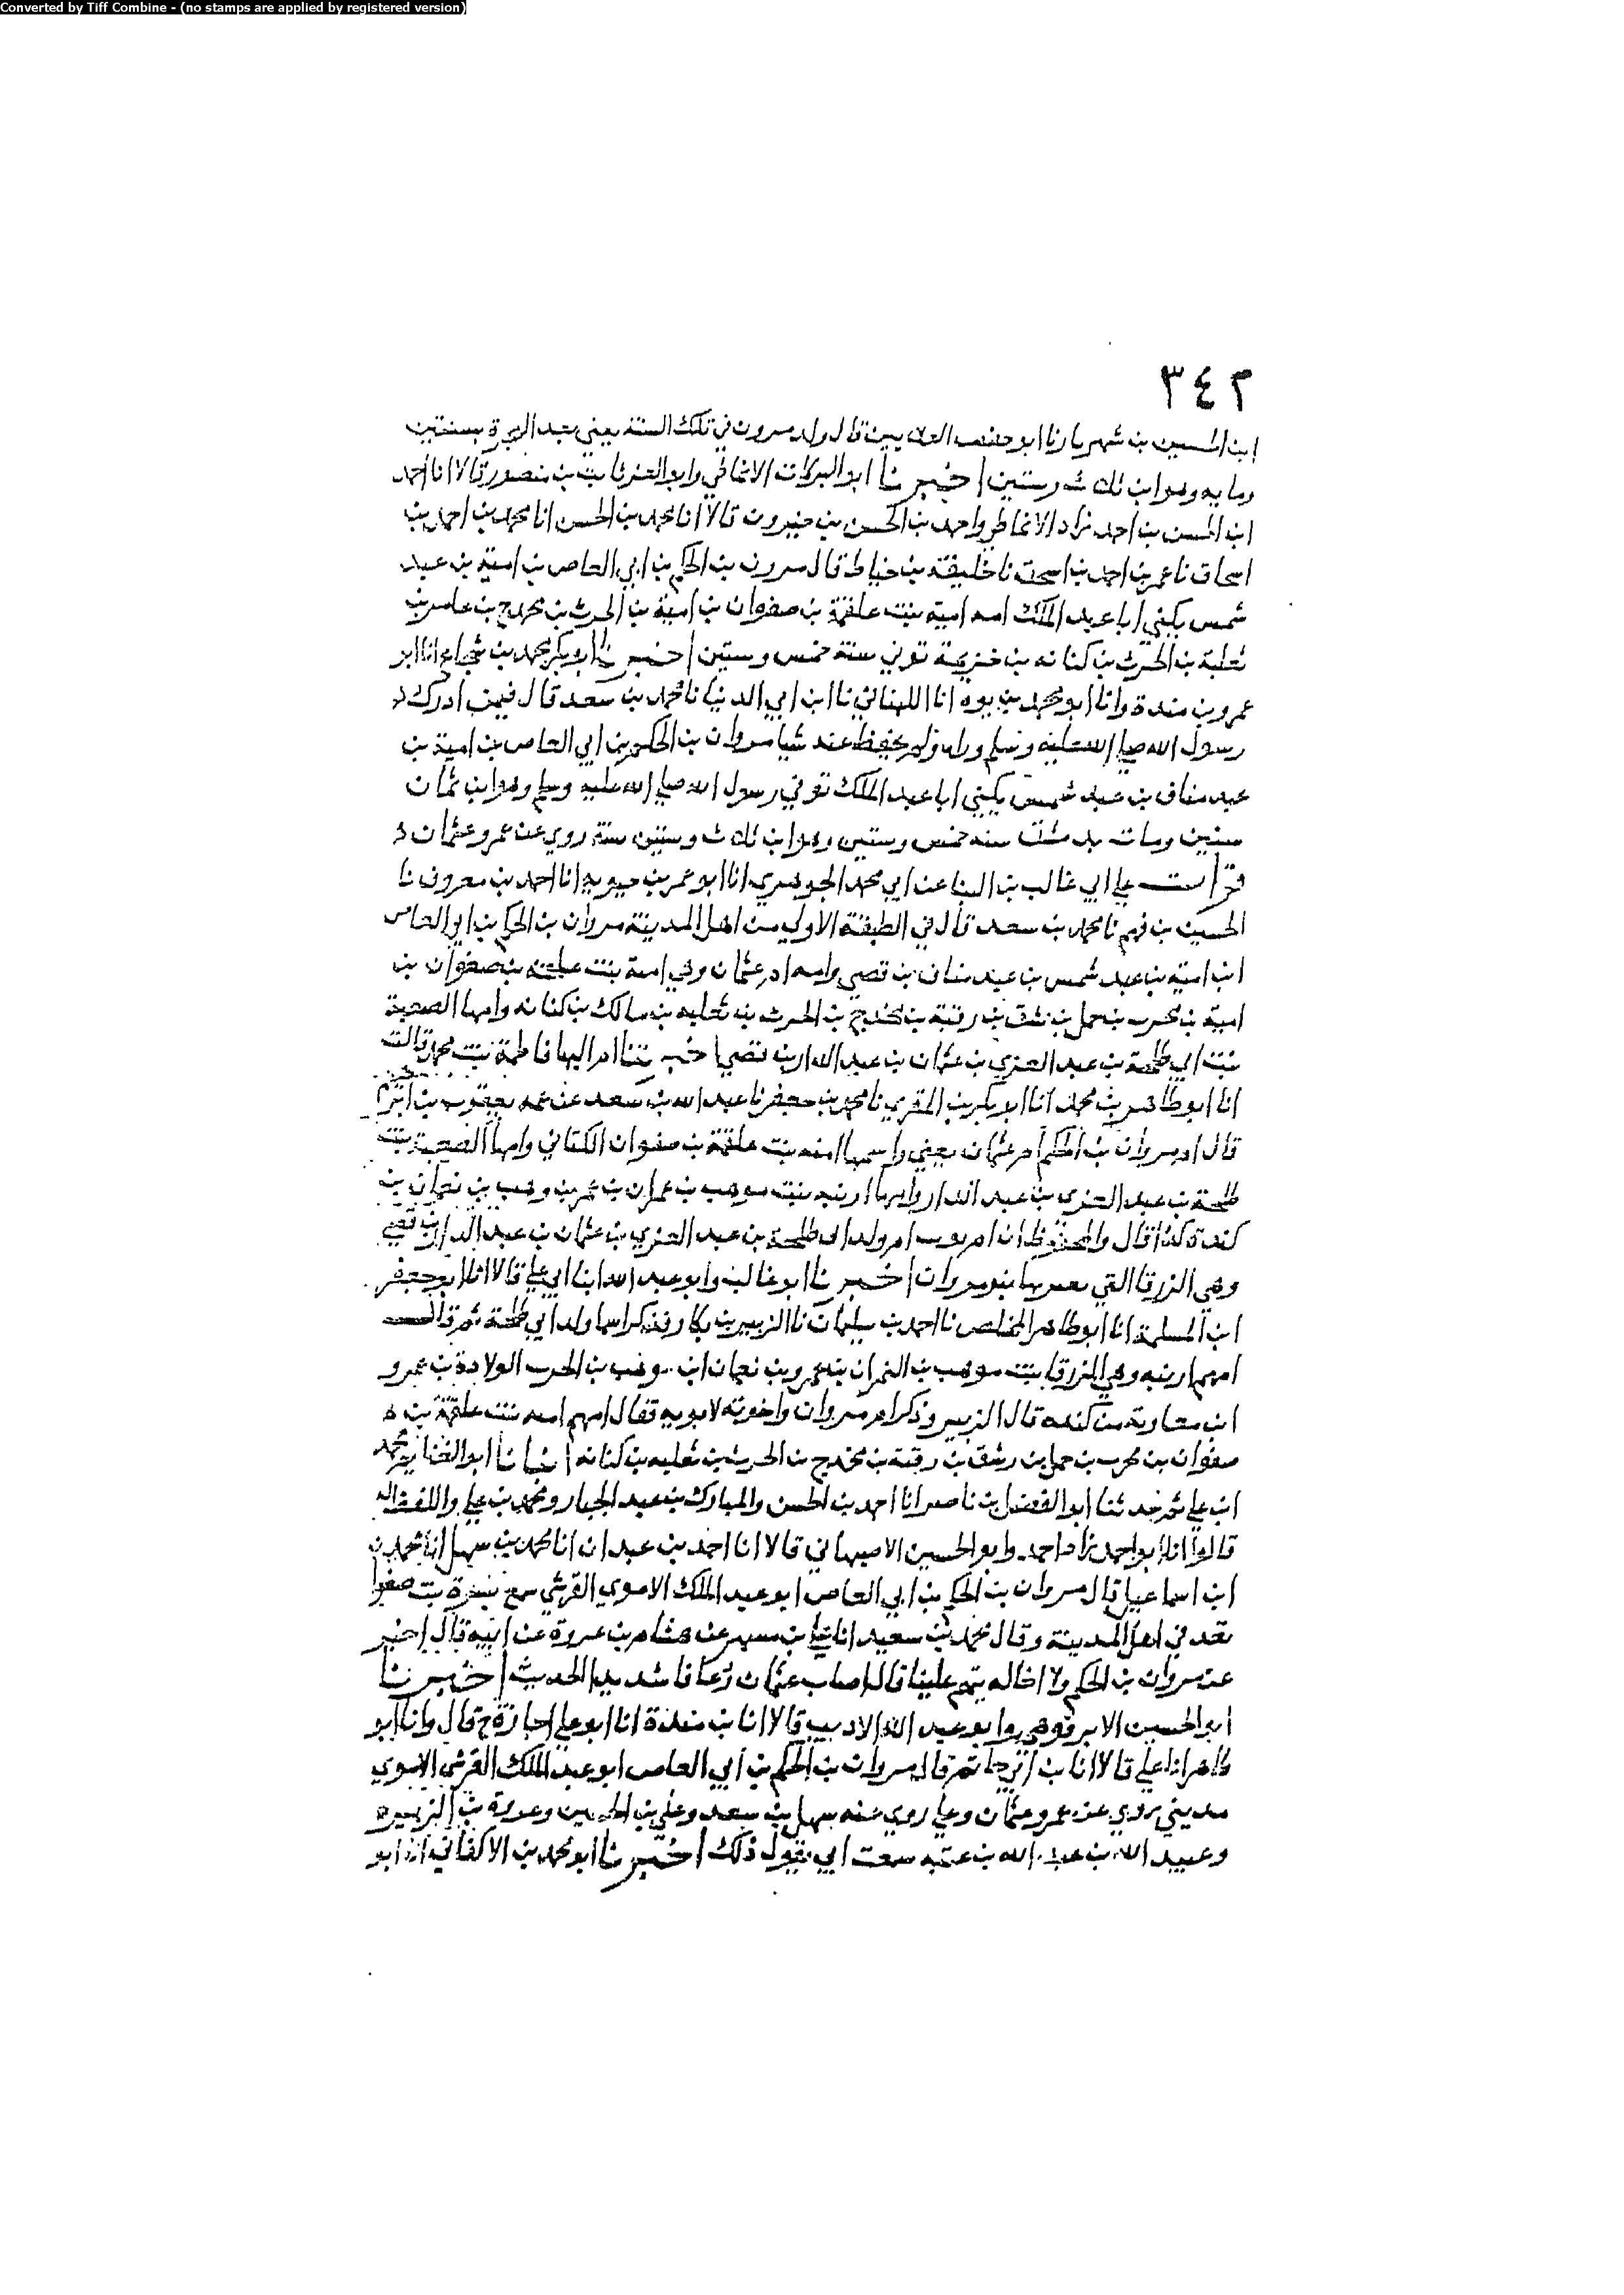 Converted by Tiff Combine - (no stamps are applied by registered version)
٣٤٢
ابن الحسين بن شهريار نا ابو حفص الفلاس قال ولد مروان في تلك السنة يعني بعد الهجرة بسنتين
وهو ابن ثلث وستين اخبرنا ابو البركات الانماطي وابو العز ثابت بن منصور قالا انا احمد
ابن الحسن بن احمد زاد الانماطي واحمد بن الحسن بن خيرون قالا انا محمد بن الحسن انا محمد بن احمد بن
اسحاق نا عمر بن احمد بن اسحق نا خليفة بن خياط قال مروان بن الحكم بن ابي العاص بن امية بن عبد
شمس يكنى ابا عبد الملك امه امية بنت علقمة بن صفوان بن امية بن الحرث بن مخدج بن عامر بن
ثعلبة بن الحرث بن كنانه بن خزيمة توفي سنة خمس وستين اخبرنا ابو بكر محمد بن شجاع انا ابو
عمرو بن مندة وانا ابو محمد بن يوه انا اللبناني نا ابن ابي الدنيا نا محمد بن سعد قال فيمن ادرك
رسول الله صلى الله عليه وسلم وراه ولم يحفظ عنه شيا مروان بن الحكم بن ابي العاص بن امية بن
عبد مناف بن عبد شمس يكنى ابا عبد الملك توفي رسول الله صلى الله عليه وسلم وهو ابن ثمان
سنين ومات بدمشق سنه خمس وستين وهو ابن ثلث وستين سنة روي عن عمر وعثمان
قرأت علي ابي غالب بن البنا عن ابي محمد الجوهري انا ابو عمر بن حيويه انا احمد بن معروف نا
الحسين بن فهم نا محمد بن سعد قال في الطبقة الاولى من اهل المدينة مروان بن الحكم بن ابو العاص
ابن امية بن عبد شمس بن عبد مناف بن قصي وامه ام عثمان وهي امية بنت علقمة بن صفوان بن
امية بن محرب بن حمل بن شق بن رقبة بن مخدج بن الحرث بن ثعلبه بن مالك بن كنانه وامها الصعبة
بنت ابي طلحة بن عبد العزي بن عثمان بن عبد الدار بن قصي اخبرتنا ام البها فاطمة بنت محمد قالت
انا ابو طاهر بن محمد انا ابو بكر بن المقري نا محمد بن جعفر نا عبيد الله بن سعد عن عمه يعقوب بن ابراهيم
قال ام مروان بن الحكم ام عثمان يعني واسمها امنه بنت علقمة بن صفوان الكناني وامها الصعبة بنت
طلحة بن عبد العزي بن عبد الدار وامها ارنبه بنت موهب بن عمران بن عمرو بن وهب بن نعمان بن
كندة كذا قال والمحفوظ ان ام موهب ام ولد ابي طلحة بن عبد العزي بن عثمان بن عبد الدار بن قصي
وهي الزرقا التي يعير بها بنو مروان اخبرنا ابو غالب وابو عبد الله ابنا ابي علي قالا انا ابو جعفر
ابن المسلمة انا ابو طاهر المخلص نا احمد بن سليمان نا الزبير بن بكار وذكر اسما ولد ابي طلحة ثم قال
امهم ارنبه وهي الزرقا بنت موهب بن النمران بن عمرو بن نعمان ابن وهب بن الحرب الولادة بن عمرو
ابن معاوية من كندة قال الزبير وذكر ام مروان واخوته لابويه فقال امهم امنه بنت علقمة بن
صفوان بن محرب بن حمل بن شق بن رقبة بن مخدج بن الحرث بن ثعلبه بن كنانه انبانا ابو الغنايم محمد
ابن علي ثم حدثنا ابو الفضل بن ناصر انا احمد بن الحسن والمبارك بن عبد الجبار ومحمد بن علي واللفظ له
قالوا انا ابو احمد زاد احمد وابو الحسين الاصبهاني قالا انا احمد بن عبدان انا محمد بن سهل انا محمد
ابن اسماعيل قال مروان بن الحكم بن ابي العاص ابو عبد الملك الاموي القرشي سمع بسرة بنت صفوان
يعد في اهل المدينة وقال محمد بن سعيد انا علي بن مسهر عن هشام بن عروة عن ابيه قال اخبر
عن مروان بن الحكم ولا اخاله يتهم علينا قال اصاب عثمان رعاف شديد الحديث اخبرنا
ابو الحسين الابرقوهي وابو عبد الله الاديب قالا انا بن مندة انا ابو علي اجازة ح قال وانا ابو
طاهر انا علي قالا انا بن ابي حاتم قال مروان بن الحكم بن ابي العاص ابو عبد الملك القرشي الاموي
مديني روي عن عمر وعثمان وعلي روي عنه سهل بن سعد وعلي بن الحسين وعروة بن الزبير
وعبيد الله بن عبد الله بن عتبه سمعت ابي يقول ذلك اخبرنا ابو محمد بن الاكفاني انا ابو